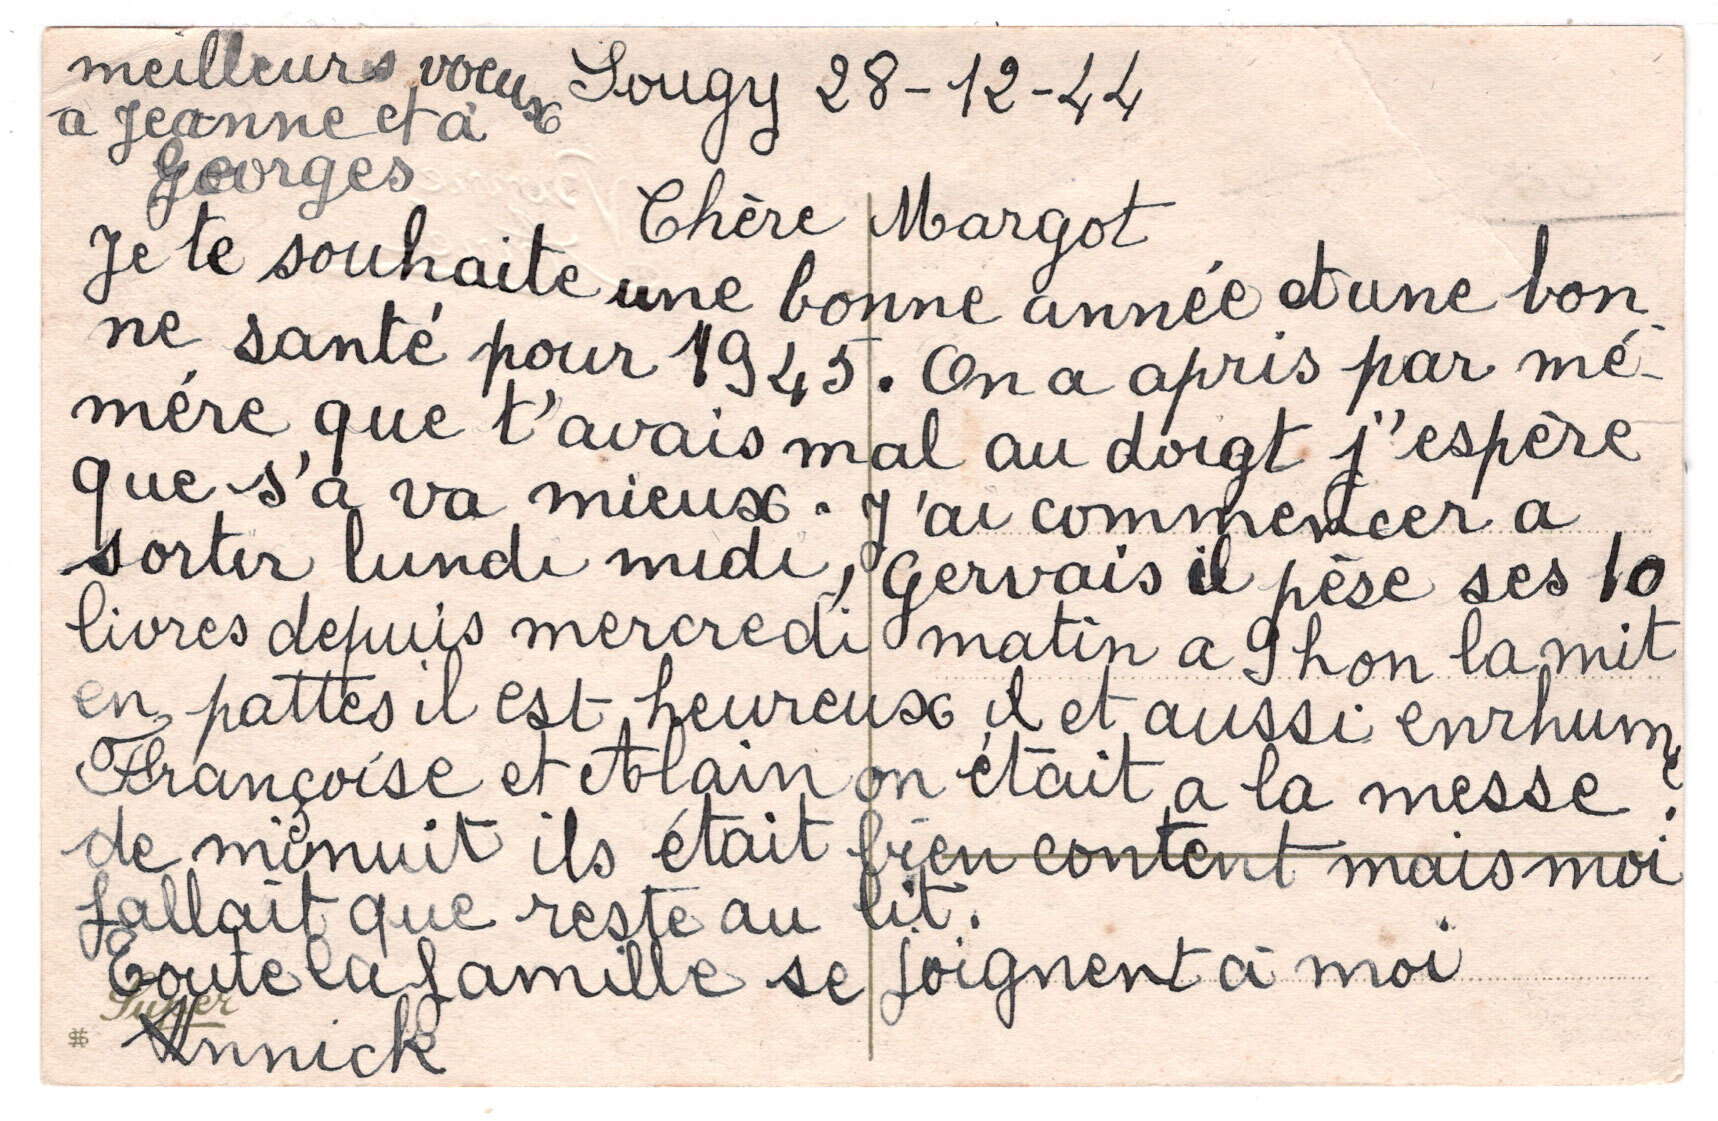 meilleurs voeux
a Jeanne et à
Georges
Sougy 28-12-44
Chère Margot
Je te souhaite une bonne année et une bon
ne santé pour 1945. On a apris par mé-
mére que t'avais mal au doigt j'espère
que s'a va mieux. J'ai commencer a
sortir lundi midi, Gervais il pèse ses 10
livres depuis mercredi matin a 9h on la mit
en pattes il est heureux il et aussi enrhumé.
Françoise et Alain on était a la messe
de minuit ils était bien content mais moi
fallait que reste au lit.
Toute la famille se joignent à moi
Super
Annick